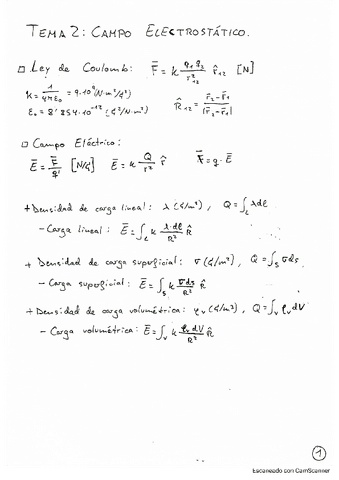 TEMA 2: CAMPO ELECTROSTÁTICO.
□ Ley de Coulomb: F̄ = k q₁q₂/r₁₂² r̂₁₂ [N]
K = 1/4πε₀ = 9·10⁹ (N·m²/C²)
R̂₁₂ = r̄₂-r̄₁/|r̄₂-r̄₁|
ε₀ = 8'854·10⁻¹² (C²/N·m²)
□ Campo Eléctrico:
Ē = F̄/q' [N/C] Ē = k Q/r² r̂ F̄ = q·Ē
+ Densidad de carga lineal: λ (C/m²), Q = ∫_L λdl
– Carga lineal: Ē = ∫_L k λ·dl/R² R̂
+ Densidad de carga superficial: σ (C/m²), Q = ∫_S σds
– Carga superficial: Ē = ∫_S k σds/R² R̂
+ Densidad de carga volumétrica: ρᵥ (C/m³), Q = ∫_V ρᵥdV
– Carga volumétrica: Ē = ∫_V k ρᵥdV/R² R̂
1
Escaneado con CamScanner